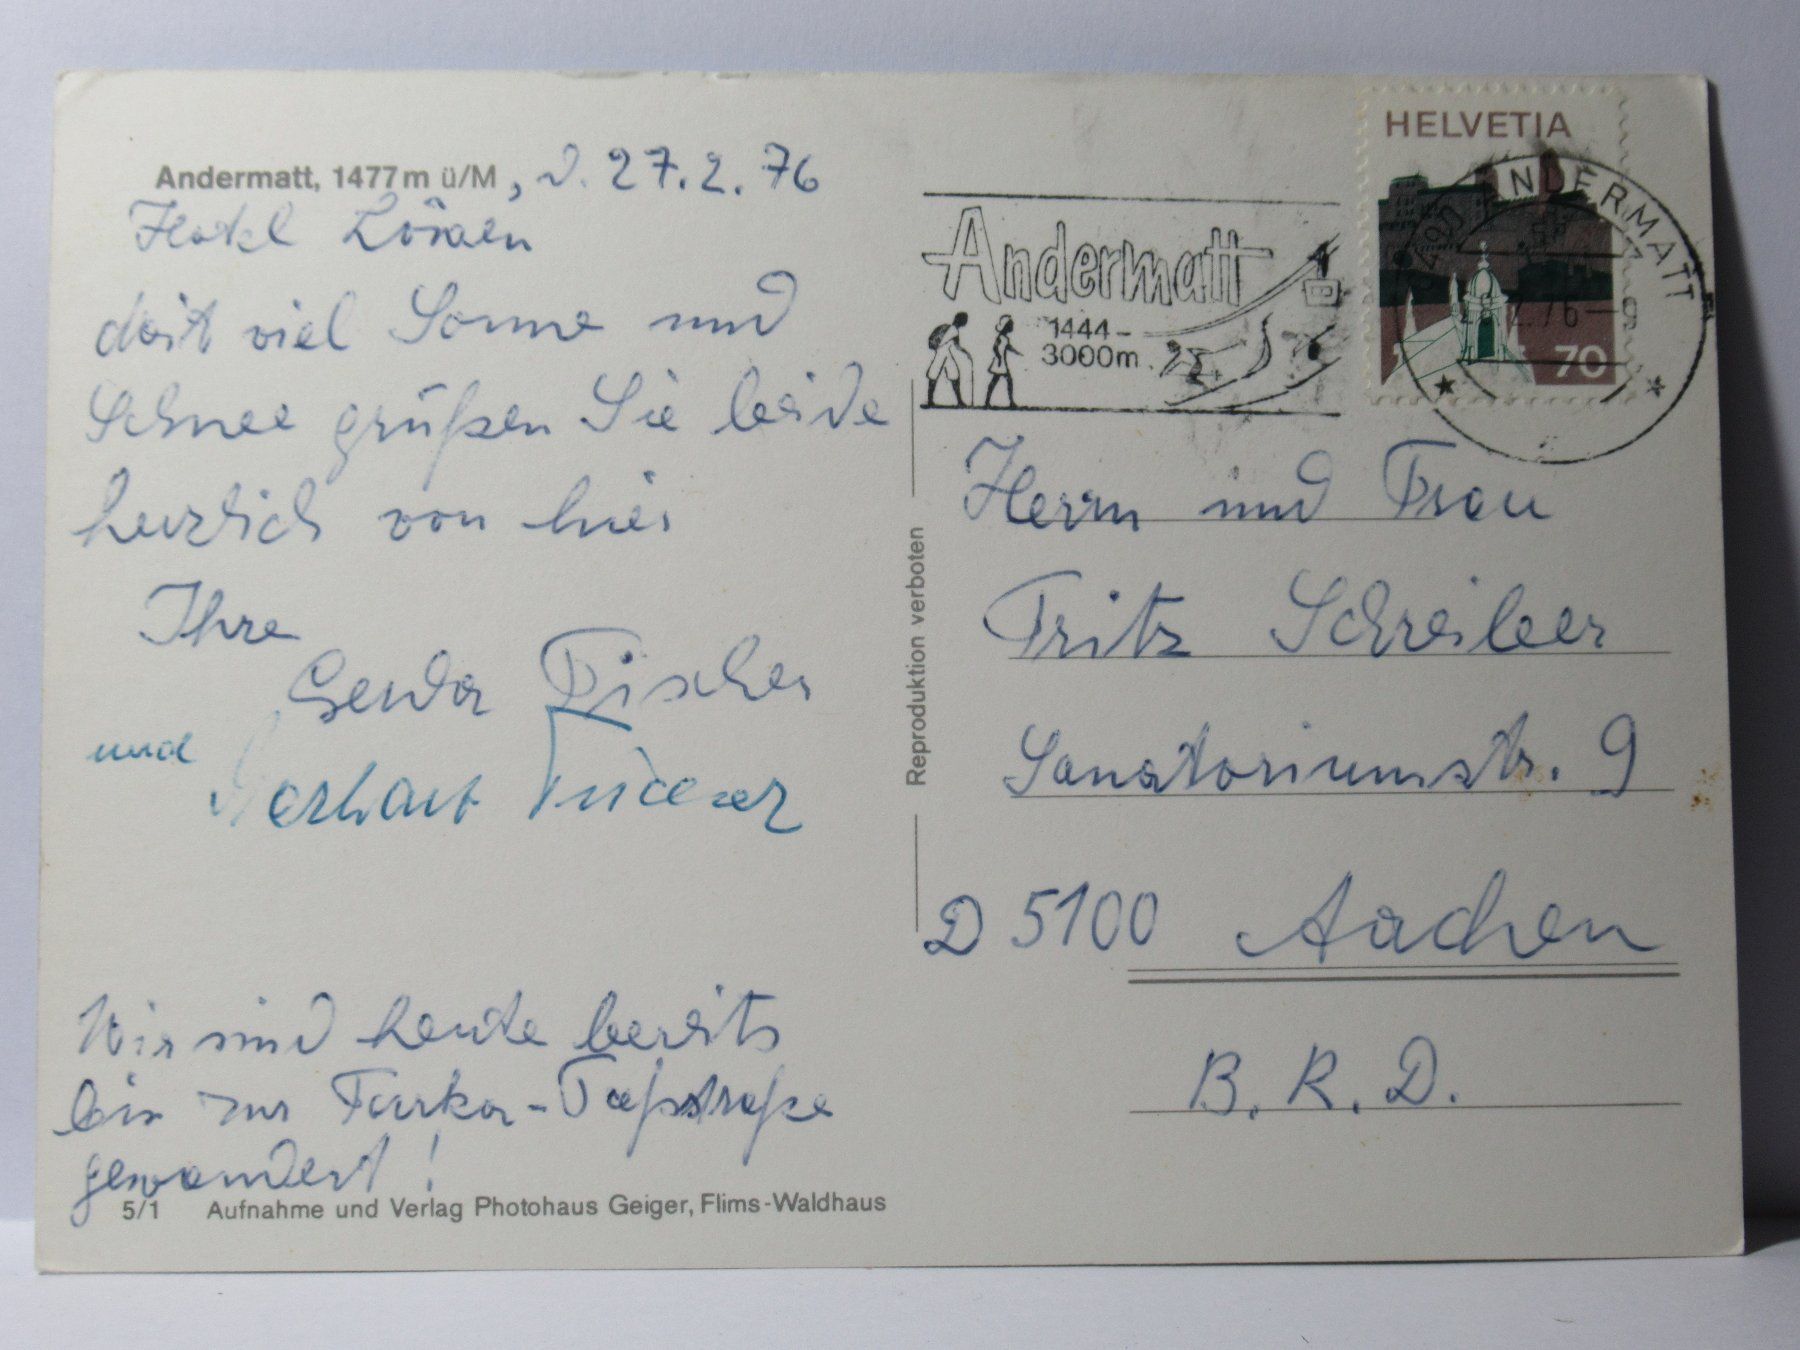 Andermatt, 1477 m ü/M, d. 27.2.76
Hotel Löwen
Mit viel Sonne und
Schnee grüßen Sie beide
herzlich von hier
Ihre
Gerda Fischer
und
Wir sind heute bereits
bis zur Furka-Paßstraße
gewandert!
5/1 Aufnahme und Verlag Photohaus Geiger, Flims-Waldhaus
Reproduktion verboten
Andermatt
1444-
3000m
HELVETIA
70
ANDERMATT
Herrn und Frau
Fritz Schreiber
Sanatoriumstr. 9
D 5100 Aachen
B.R.D.